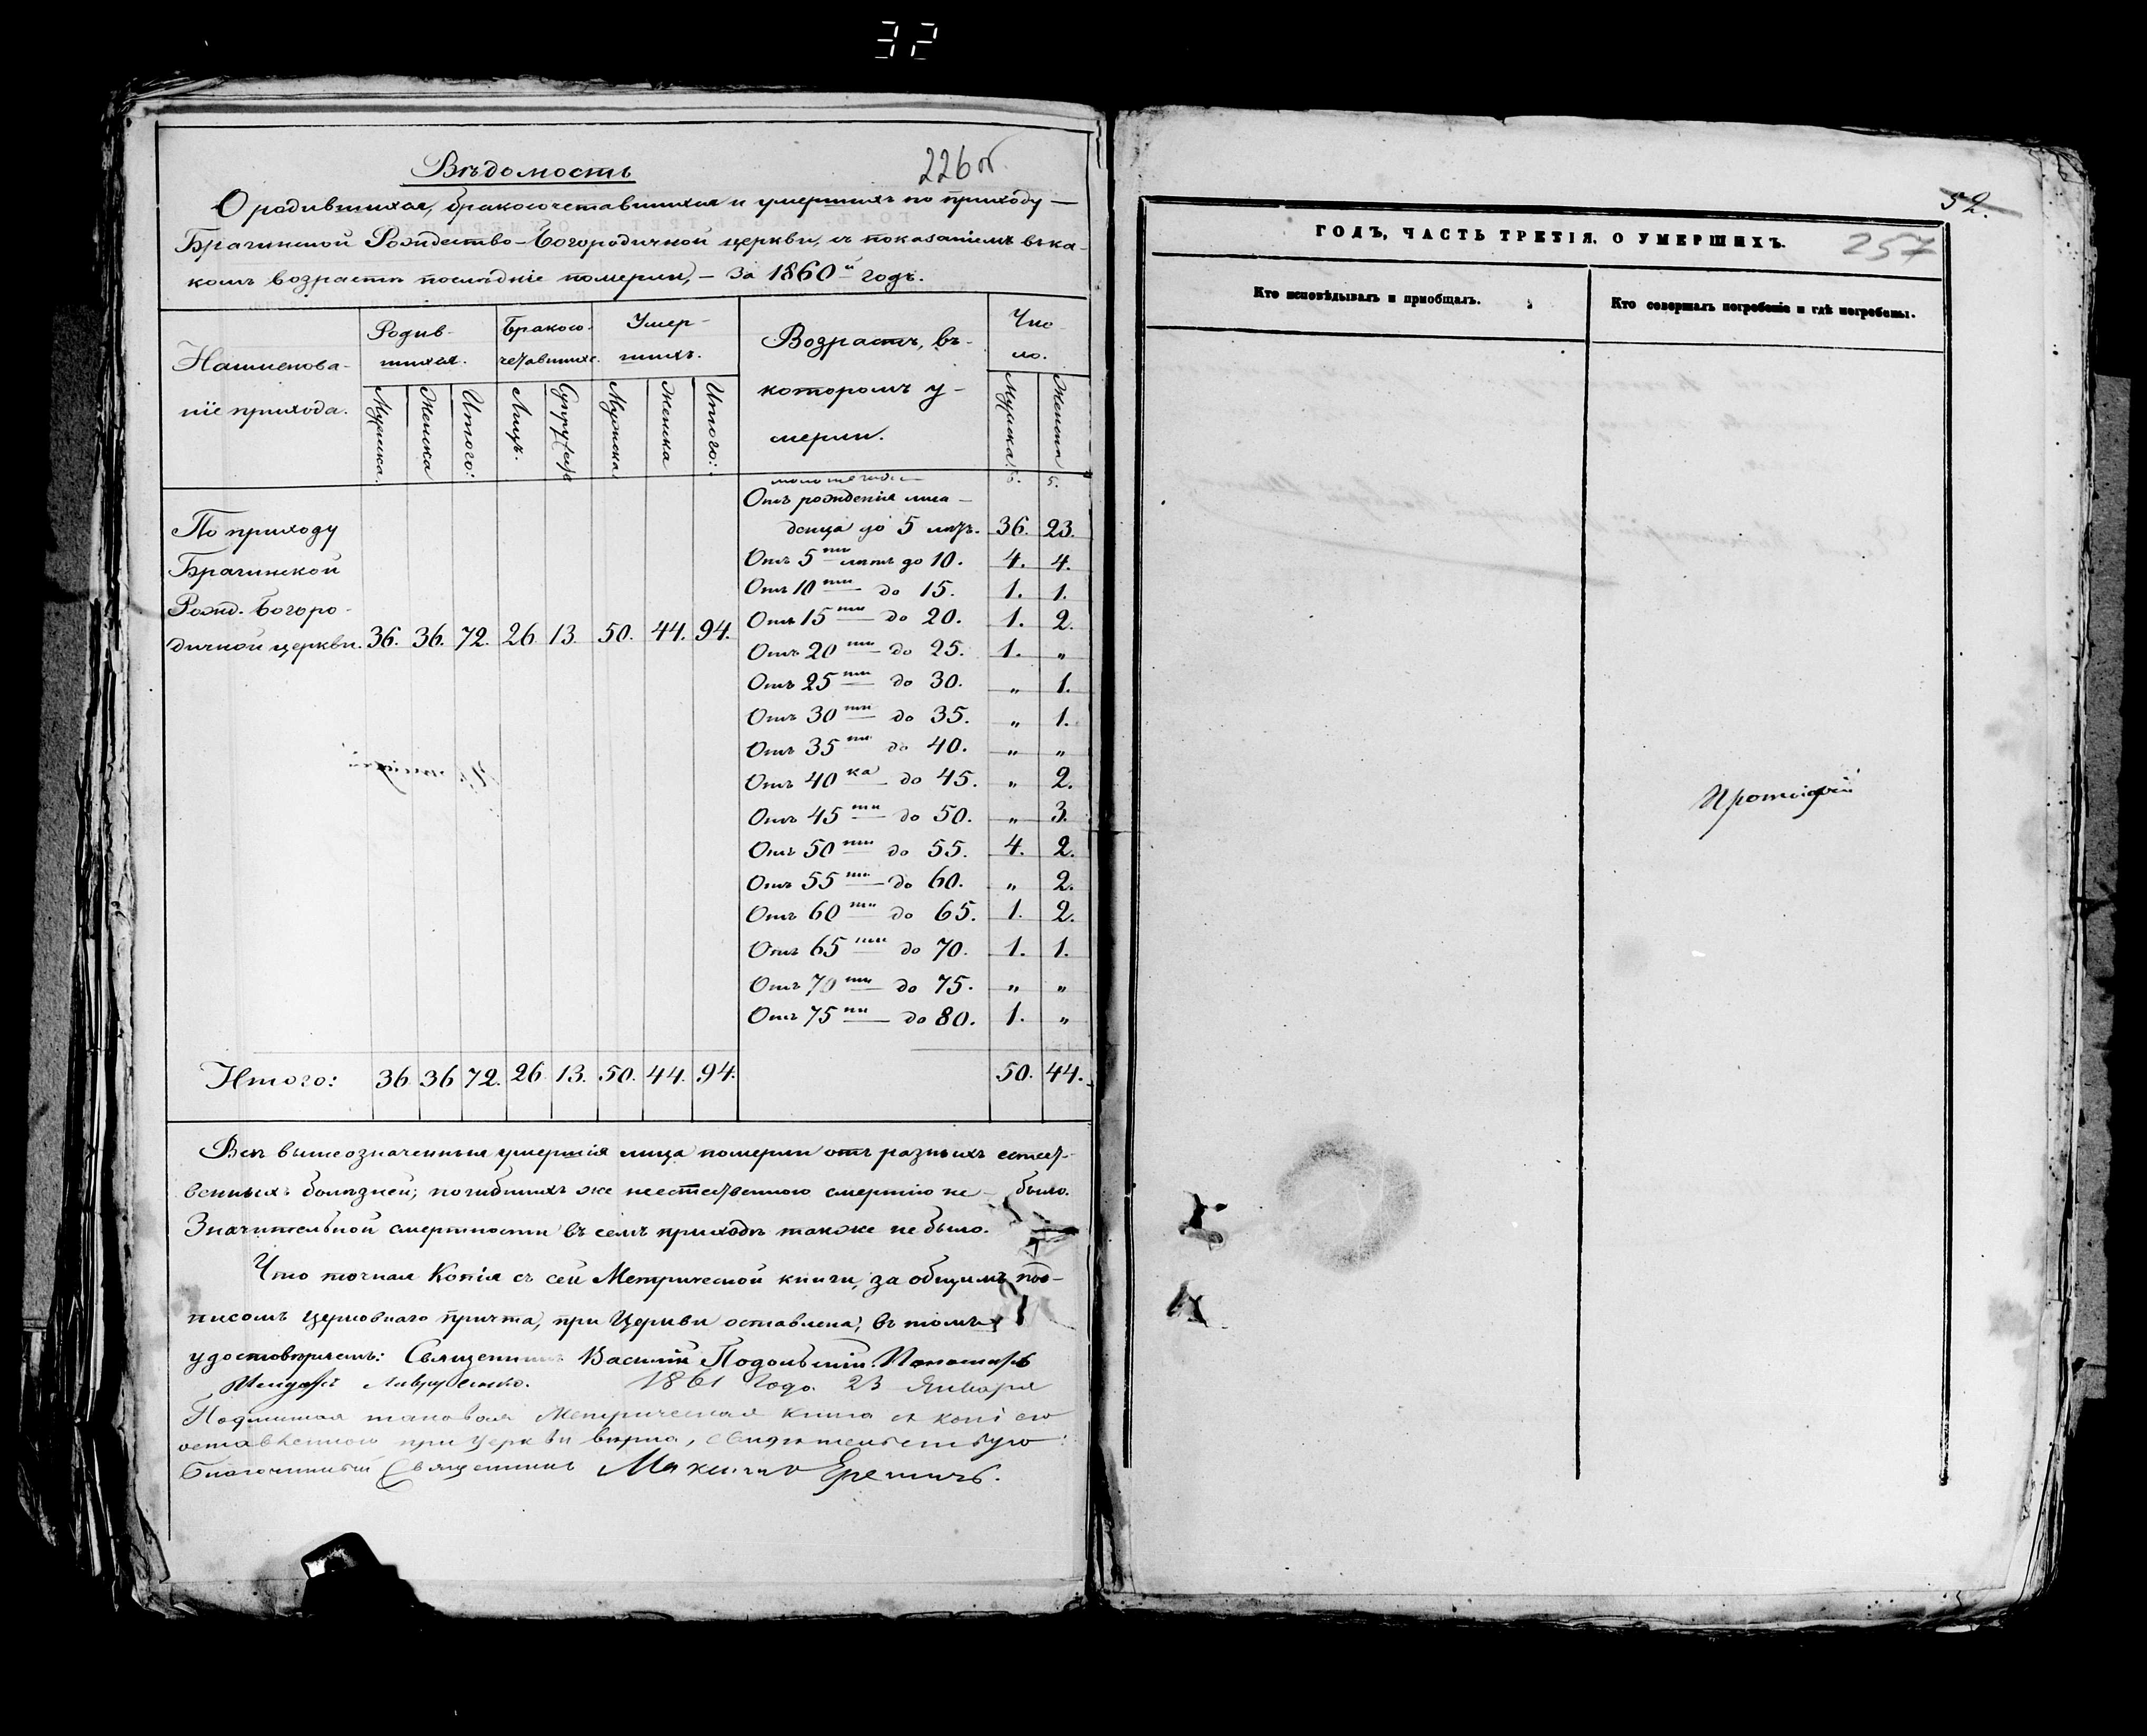 32
Вѣдомость
226 об
О родившихся, бракосочетавшихся и умершихъ по приходу —
Брагинской Рождество-Богородичной церкви, съ показаніемъ въ ка-
комъ возрастѣ послѣдніе померли, — за 1860й годъ.
Наименова-
ніе прихода.
Родив-
шихся.
Бракосо-
четавшихс.
Умер-
шихъ.
Возрастъ, въ
которомъ у-
мерли.
Чис-
ло.
Мужеска. Женска Итого: Лицъ. Супружес Мужеска Женска Итого: Мужеска. Женска
5. 5.
Отъ рожденія мла-
денца до 5 лѣтъ. 36. 23.
Отъ 5ти лѣтъ до 10. 4. 4.
Отъ 10ти до 15. 1. 1.
Отъ 15ти до 20. 1. 2.
Отъ 20ти до 25. 1. „
Отъ 25ти до 30. „ 1.
Отъ 30ти до 35. „ 1.
Отъ 35ти до 40. „ „
Отъ 40ка до 45. „ 2.
Отъ 45ти до 50. „ 3.
Отъ 50ти до 55. 4. 2.
Отъ 55ти до 60. „ 2.
Отъ 60ти до 65. 1. 2.
Отъ 65ти до 70. 1. 1.
Отъ 70ти до 75. „ „
Отъ 75ти до 80. 1. „
По приходу
Брагинской
Рожд. Богоро-
дичной церкви. 36. 36. 72. 26. 13. 50. 44. 94.
Итого: 36 36 72. 26 13. 50. 44. 94. 50. 44.
Всѣ вышеозначенныя умершія лица померли отъ разныхъ естест-
венныхъ болѣзней; погибшихъ же неестественною смертію не — было.
Значительной смертности въ семъ приходѣ также не было.
Что точная Копія съ сей Метрической книги, за общимъ под-
писомъ церковнаго причта, при Церкви оставлена, въ томъ
удостовѣряемъ: Священникъ Василій Подольскій. Пономарь
1861 года 23 Января
Подлинная таковая Метрическая книга съ копіею
оставленною при Церкви вѣрна, свидѣтельствую:
Благочинный Священникъ Максимъ Еремичъ.
52.
257
ГОДЪ, ЧАСТЬ ТРЕТІЯ, О УМЕРШИХЪ.
Кто исповѣдывалъ и пріобщалъ.
Кто совершалъ погребеніе и гдѣ погребены.